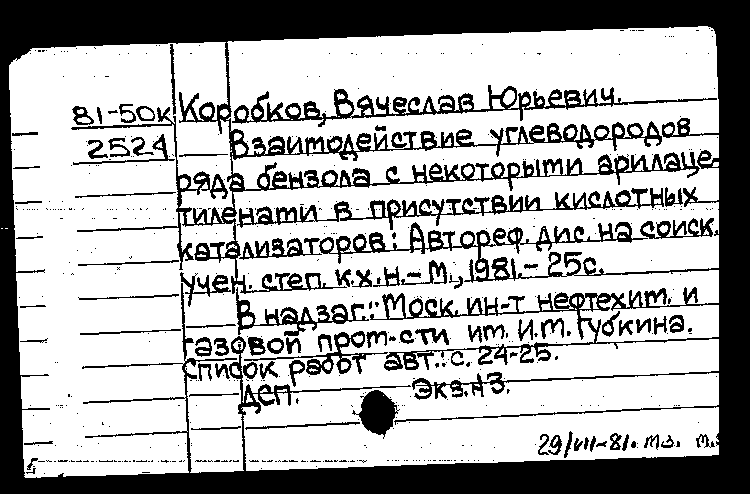 81-50к Коробков, Вячеслав Юрьевич.
2524 Взаимодействие углеводородов
ряда бензола с некоторыми арилаце-
тиленами в присутствии кислотных
катализаторов: Автореф. дис. на соиск.
учен. степ. к.х.н. - М., 1981. - 25с.
В надзаг.: Моск. ин-т нефтехим. и
газовой пром-сти им. И.М. Губкина.
Список работ авт.: с. 24-25.
ДСП. Экз.№3.
29/VII-81. мз.